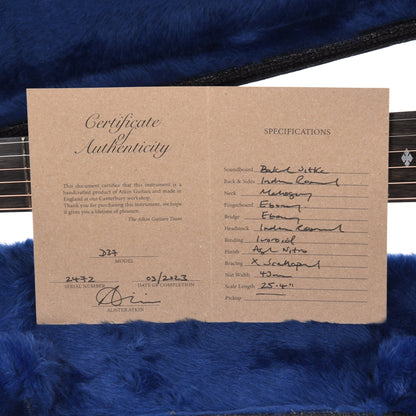 Certificate
of
Authenticity
This document certifies that this instrument is a
handcrafted product of Atkin Guitars and made in
England at our Canterbury workshop.
Thank you for purchasing this instrument, we hope
it gives you a lifetime of pleasure.
The Atkin Guitars Team
D37
MODEL
2472
SERIAL NUMBER
03/2023
DATE OF COMPLETION
ALISTER ATKIN
SPECIFICATIONS
Soundboard Baked Sitka
Back & Sides Indian Rosewood
Neck Mahogany
Fingerboard Ebony
Bridge Ebony
Headstock Indian Rosewood
Binding Ivoroid
Finish Aged Nitro
Bracing X Scalloped
Nut Width
Scale Length 25.4"
Pickup